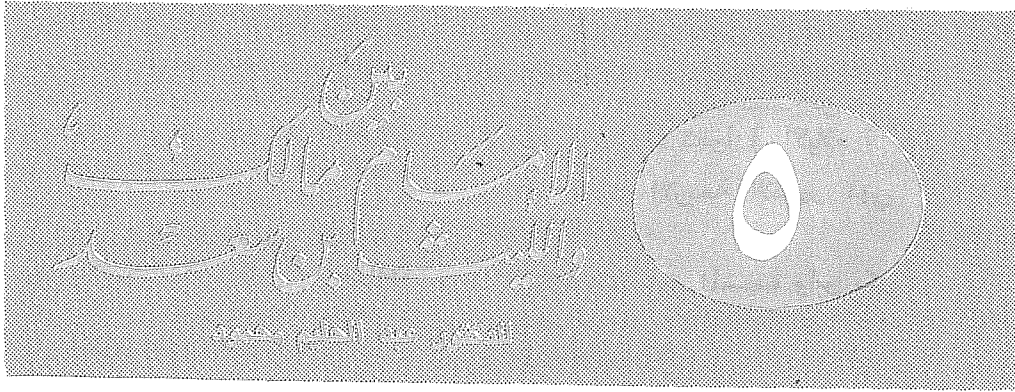 بين
الإمام مالك
والليث بن سعد
للدكتور عبد الحليم محمود
٥